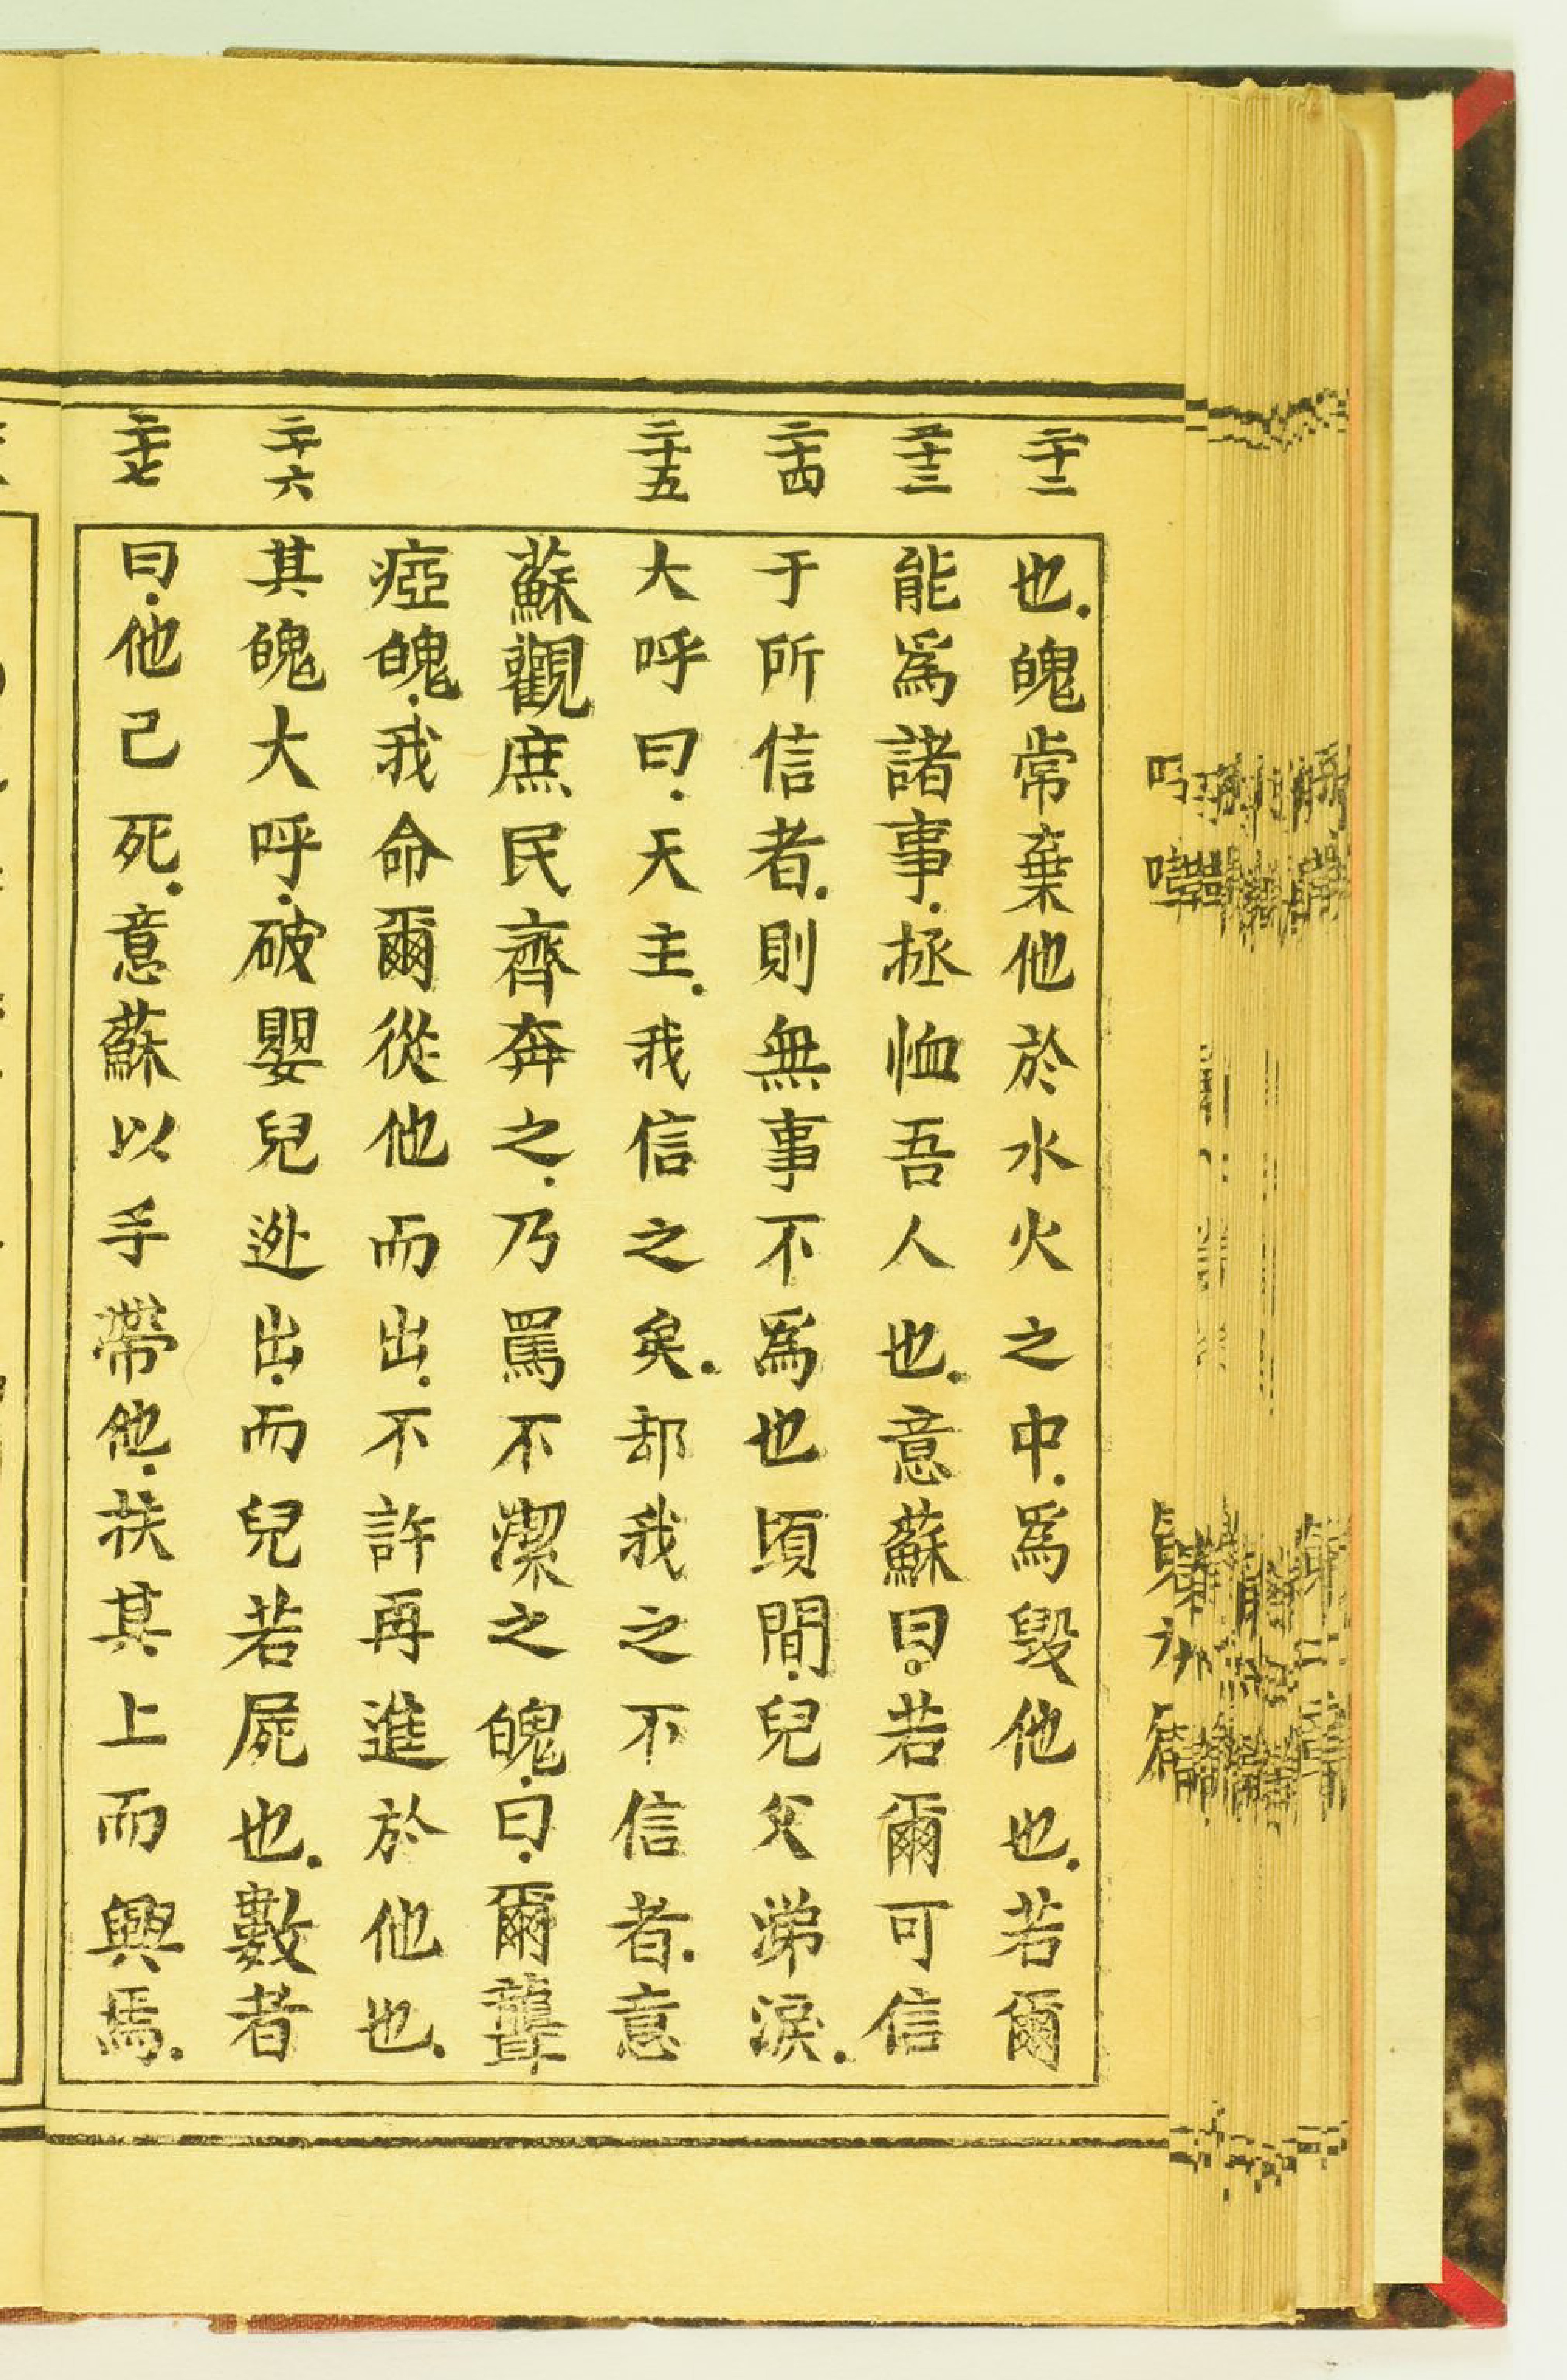 二十二
也．魄常棄他於水火之中．爲毀他也．若爾
二十三
能爲諸事．拯恤吾人也．意蘇曰．若爾可信
二十四
于所信者．則無事不爲也頃間．兒父涕淚．
二十五
大呼曰．天主．我信之矣．却我之不信者．意
蘇觀庶民齊奔之．乃罵不潔之魄．曰．爾聾
瘂魄．我命爾從他而出．不許再進於他也．
二十六
其魄大呼．破嬰兒迯出．而兒若屍也．數者
二十七
曰．他己死．意蘇以手帶他．扶其上而興焉．